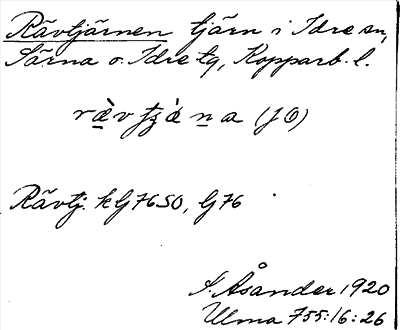 Rävtjärnen tjärn i Idre sn,
Särna o. Idre tg, Kopparb. l.
Rävtj. kG7650, G76
S. Åsander 1920
Ulma 755:16:26